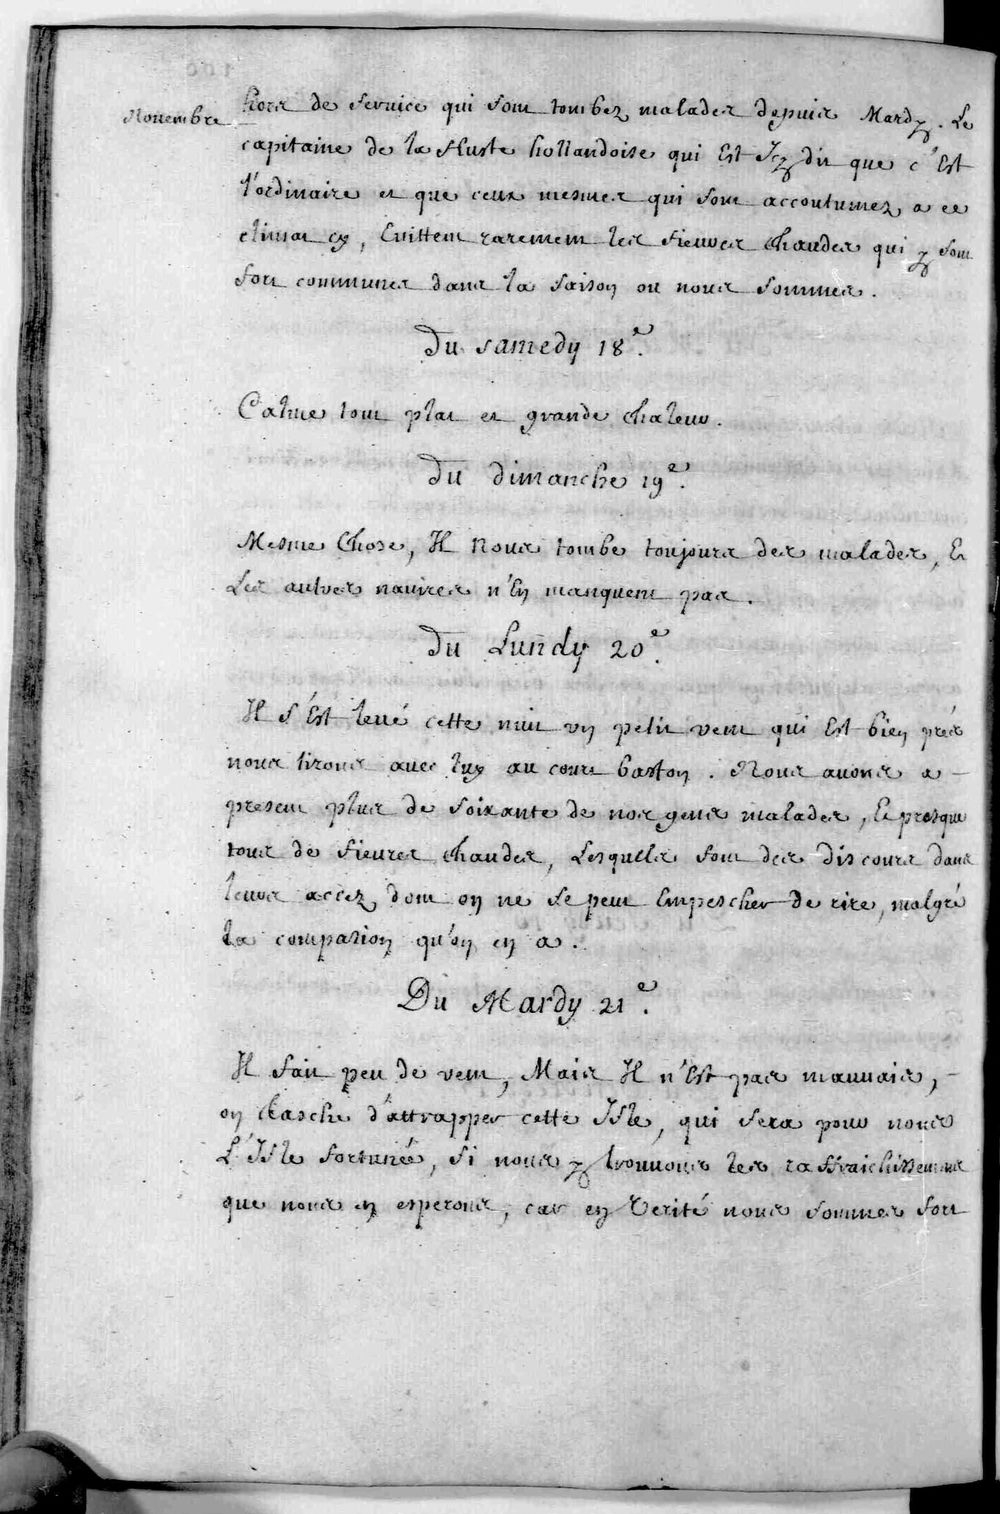 Nouembre
hors de seruice qui sont tombez malades depuis Mardy. Le
capitaine de la fluste hollandoise qui Est Icy dit que c'Est
l'ordinaire et que ceux mesmes qui sont accoutumez a ce
climat cy, Euittent rarement les fieures chaudes qui y sont
fort communes dans la saison ou nous sommes.
Du samedy 18e.
Calme tout plat et grande chaleur.
Du dimanche 19e.
Mesme Chose, Il Nous tombe toujours des malades, Et
Les autres nauires n'En manquent pas.
Du Lundy 20e.
Il s'Est leué cette nuit un petit vent qui Est bien prés
nous tirons auec luy au court baston. Nous auons a-
present plus de soixante de nos gens malades, Et presque
tous de fieures chaudes, Lesquels font des discours dans
leurs accez dont on ne se peut Empescher de rire, malgré
la compasion qu'on en a.
Du Mardy 21e.
Il fait peu de vent, Mais Il n'Est pas mauuais,
on tasche d'attrapper cette Isle, qui sera pour nous
L'Isle fortunée, si nous y trouuons les raffraichissemens
que nous en esperons, car en Verité nous sommes fort